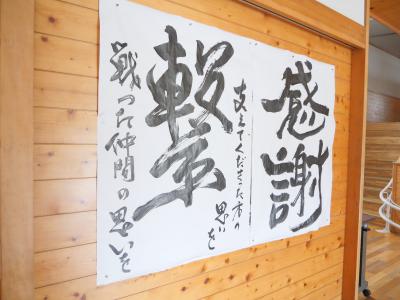 感謝
支えてくださった方の思いを
繋
戦った仲間の思いを